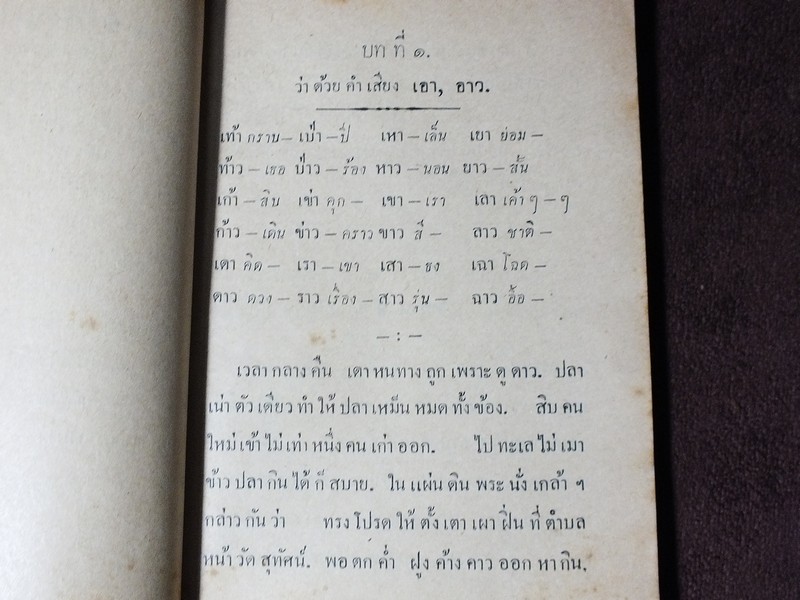 บท ที่ ๑.
ว่า ด้วย คำ เสียง เอา, อาว.
เท้า กราบ — เป่า — ปี่ เหา — เล็น เยา ย่อม —
ท้าว — เธอ ป่าว — ร้อง หาว — นอน ยาว — สั้น
เก้า — สิบ เข่า คุก — เขา — เรา เลา เค้า ๆ — ๆ
ก้าว — เดิน ข่าว — คราว ขาว สี — ลาว ชาติ —
เดา คิด — เรา — เขา เสา — ธง เฉา โฉด —
ดาว ดวง — ราว เรื่อง — สาว รุ่น — ฉาว อื้อ —
— : —
เวลา กลาง คืน เดา หนทาง ถูก เพราะ ดู ดาว. ปลา
เน่า ตัว เดียว ทำ ให้ ปลา เหม็น หมด ทั้ง ข้อง. สิบ คน
ใหม่ เข้า ไม่ เท่า หนึ่ง คน เก่า ออก. ไป ทะเล ไม่ เมา
ข้าว ปลา กิน ได้ ก็ สบาย. ใน แผ่น ดิน พระ นั่ง เกล้า ฯ
กล่าว กัน ว่า ทรง โปรด ให้ ตั้ง เตา เผา ฝิ่น ที่ ตำบล
หน้า วัด สุทัศน์. พอ ตก ค่ำ ฝูง ค้าง คาว ออก หา กิน.